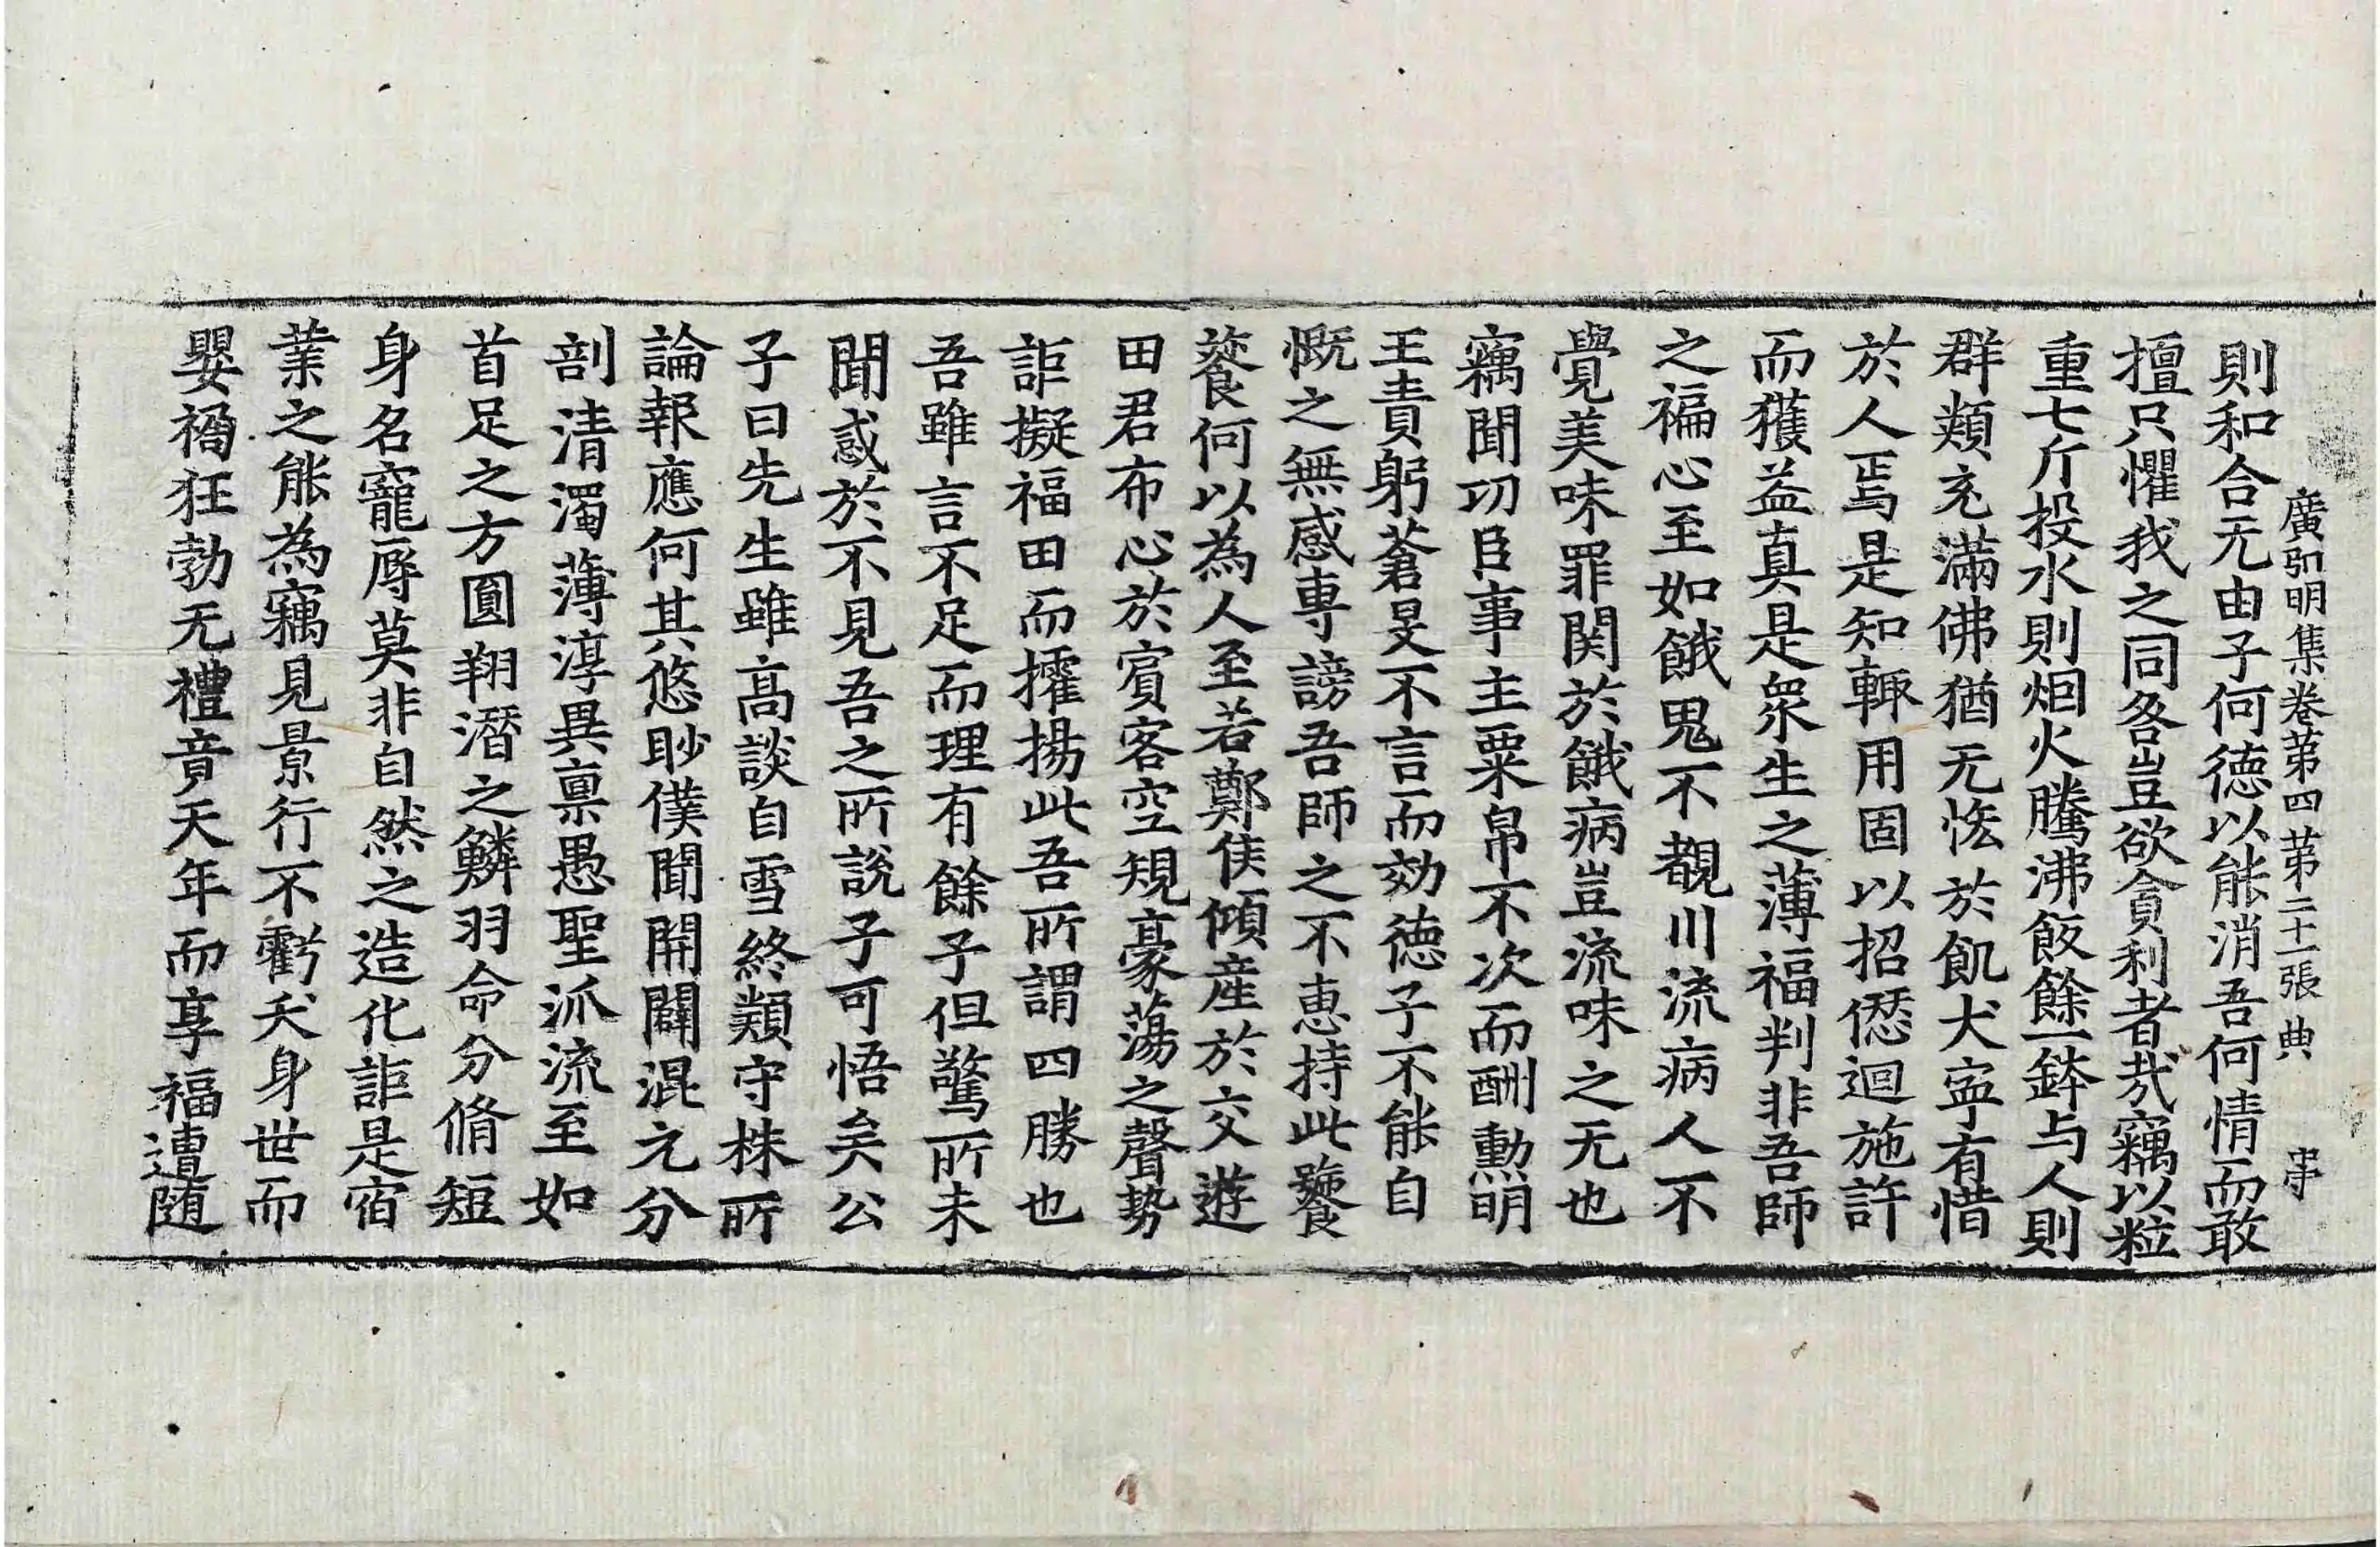 廣弘明集卷第四 第二十一張 典 𠁼
則和合无由子何德以能消吾何情而敢
擅只懼我之同咎豈欲貪利者㢤竊以粒
重七斤投水則烟火騰沸飯餘一鉢与人則
群類充滿佛猶无悋於飢犬寧有惜
於人焉是知輙用固以招𠎝迴施許
而獲益真是衆生之薄福判非吾師
之褊心至如餓鬼不覩川流病人不
覺美味罪関於餓病豈流味之无也
竊聞功臣事主粟帛不次而酬勲明
王責躬蒼旻不言而効德子不能自
慨之無感専謗吾師之不惠持此饕
餮何以為人至若鄭侯傾産於交遊
田君布心於賓客空規豪蕩之聲勢
詎擬福田而擢揚此吾所謂四勝也
吾雖言不足而理有餘子但驚所未
聞惑於不見吾之所說子可悟矣公
子曰先生雖高談自雪終類守株所
論報應何其悠眇僕聞開闢混元分
剖清濁薄淳異禀愚聖派流至如
首足之方圓翔潛之鱗羽命分脩短
身名寵辱莫非自然之造化詎是宿
業之能為竊見景行不虧夭身世而
嬰禍狂勃无禮竟天年而享福遭随